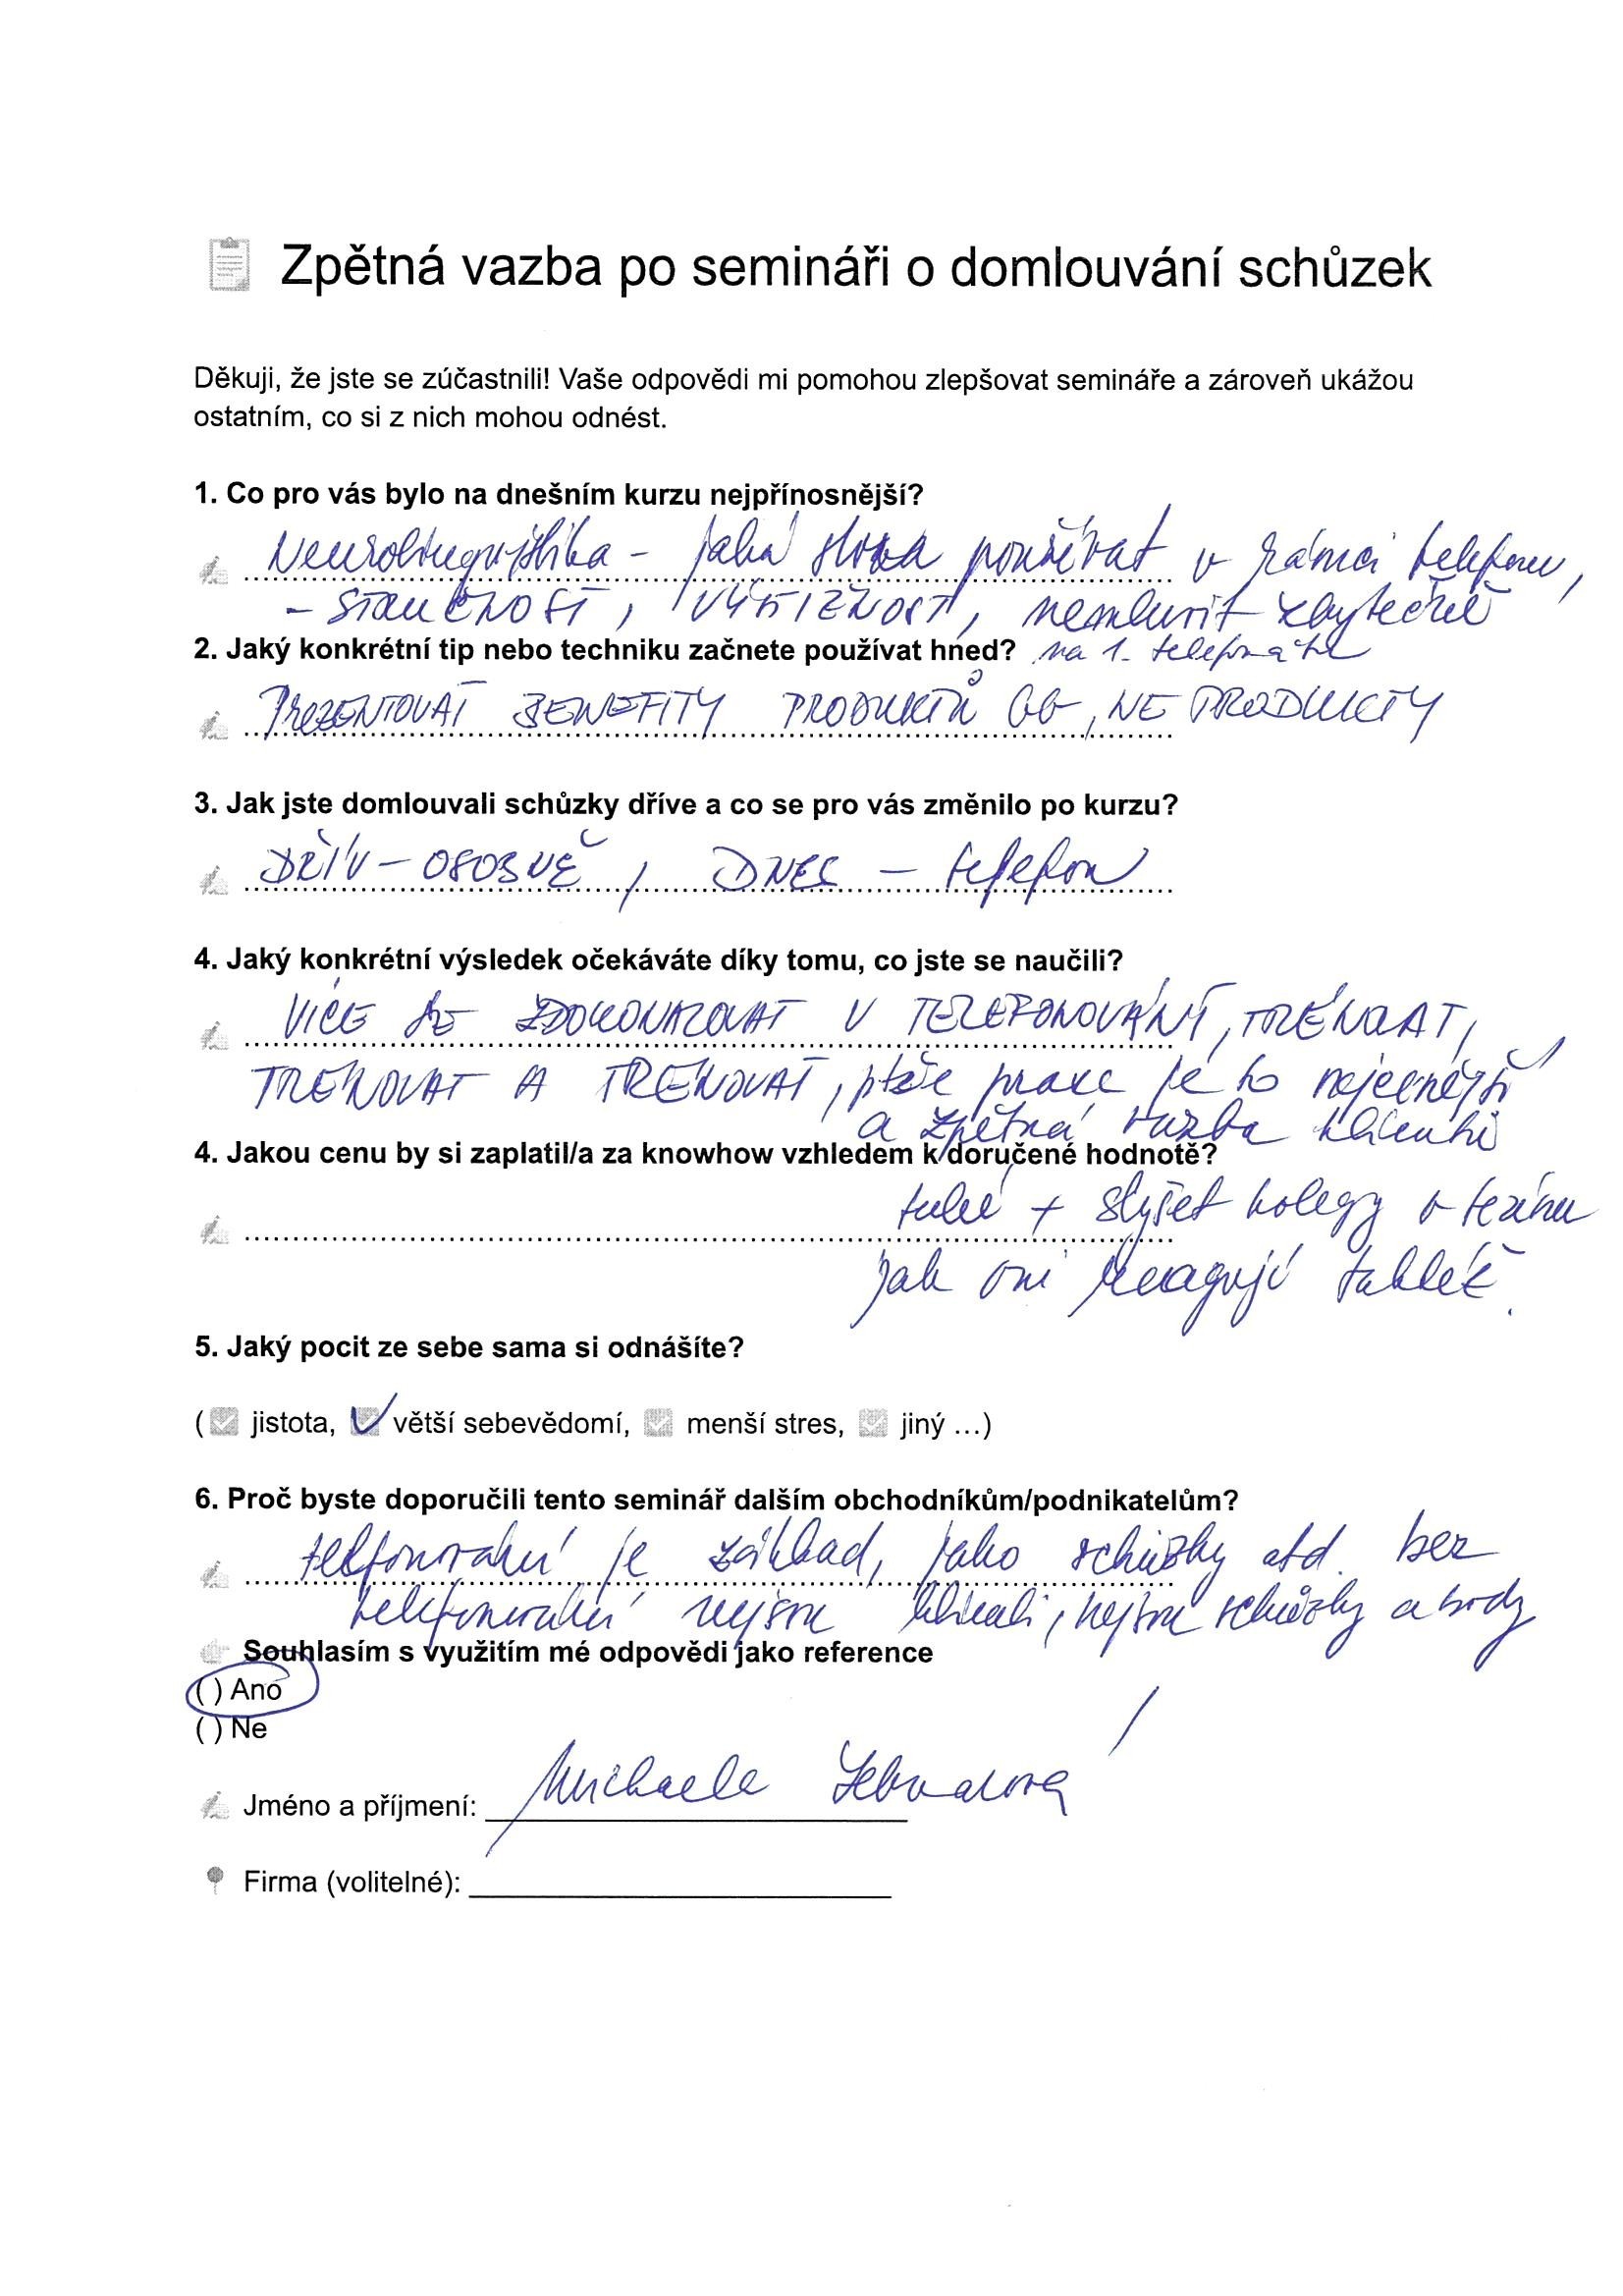 Zpětná vazba po semináři o domlouvání schůzek
Děkuji, že jste se zúčastnili! Vaše odpovědi mi pomohou zlepšovat semináře a zároveň ukážou
ostatním, co si z nich mohou odnést.
1. Co pro vás bylo na dnešním kurzu nejpřínosnější?
Neurolingvistika - jaká slova používat v rámci telefonu,
- STRUČNOST, VÝSTIŽNOST, nemluvit zbytečně
na 1. telefonátu
2. Jaký konkrétní tip nebo techniku začnete používat hned?
PREZENTOVAT BENEFITY PRODUKTŮ GG, NE PRODUKTY
3. Jak jste domlouvali schůzky dříve a co se pro vás změnilo po kurzu?
DŘÍV - OSOBNĚ, DNES - telefon
4. Jaký konkrétní výsledek očekáváte díky tomu, co jste se naučili?
VÍCE SE ZDOKONALOVAT V TELEFONOVÁNÍ, TRÉNOVAT,
TRÉNOVAT A TRÉNOVAT, ptže praxe je to nejcennější
a zpětná vazba klientů
také + slyšet kolegy v terénu
jak oni reagují taktéž.
4. Jakou cenu by si zaplatil/a za knowhow vzhledem k doručené hodnotě?
5. Jaký pocit ze sebe sama si odnášíte?
( jistota, větší sebevědomí, menší stres, jiný ...)
6. Proč byste doporučili tento seminář dalším obchodníkům/podnikatelům?
telefonování je základ, jako schůzky atd. bez
telefonování nejsou klienti, nejsou schůzky a body
Souhlasím s využitím mé odpovědi jako reference
( ) Ano
( ) Ne
Jméno a příjmení: Michaela
Firma (volitelné):